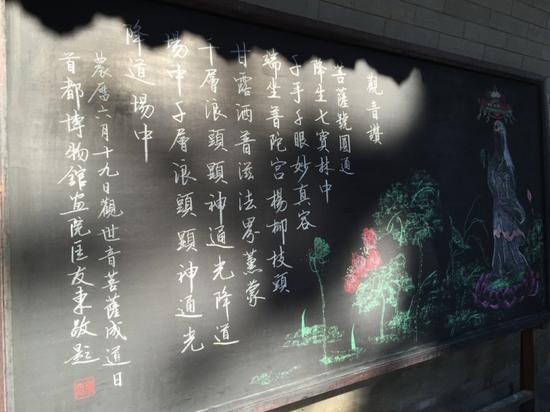 觀音讚
菩薩號圓通
降生七寶林中
千手千眼妙真容
端坐普陀宮楊柳枝頭
甘露洒普滋法界薰蒙
千層浪頭顯神通光降道
場中千層浪頭顯神通光
降道場中
農曆六月十九日觀世音菩薩成道日
首都博物館画院匡友東敬題